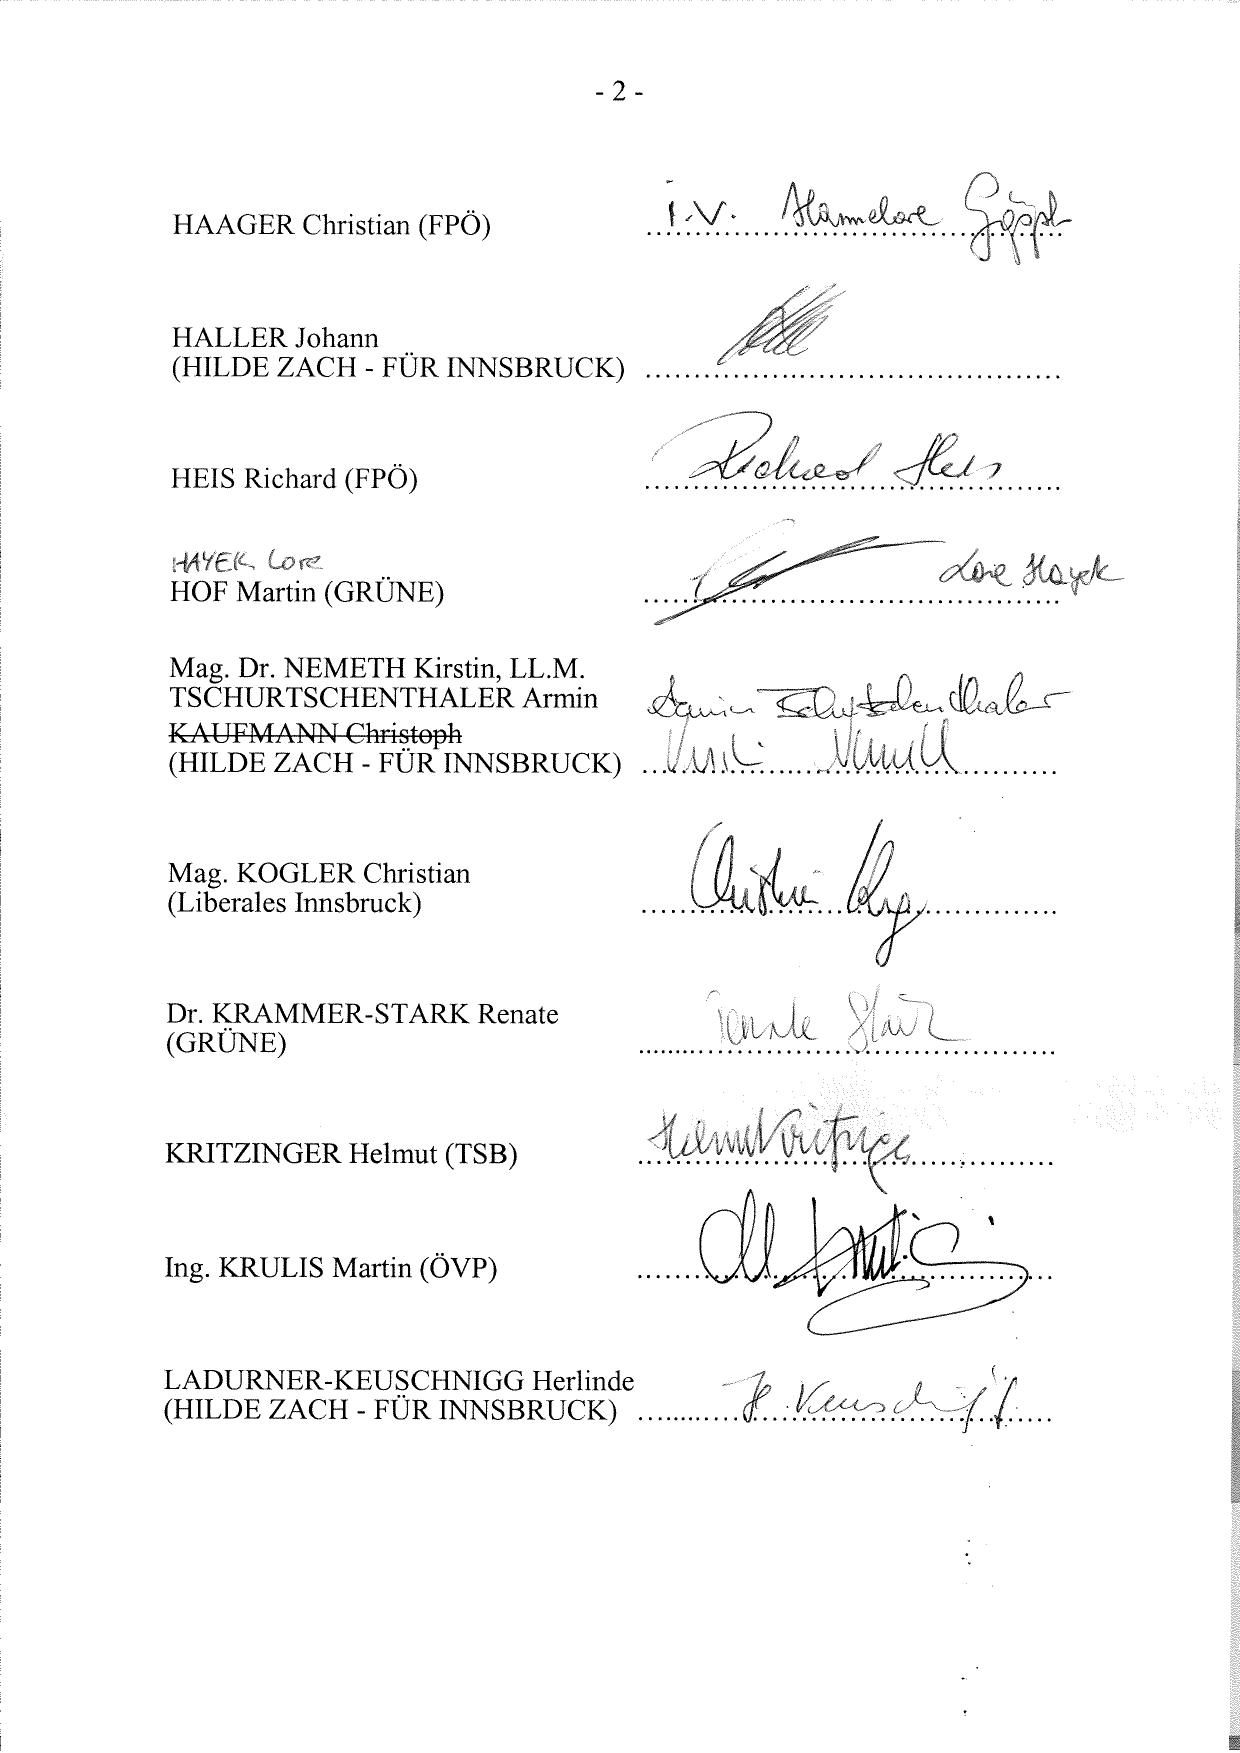 - 2 -
HAAGER Christian (FPÖ) i.V. Hannelore Göppl
HALLER Johann
(HILDE ZACH - FÜR INNSBRUCK)
HEIS Richard (FPÖ) Richard Heis
HAYEK Lore
HOF Martin (GRÜNE) Lore Hayek
Mag. Dr. NEMETH Kirstin, LL.M.
TSCHURTSCHENTHALER Armin Armin Tschurtschenthaler
KAUFMANN Christoph
(HILDE ZACH - FÜR INNSBRUCK)
Mag. KOGLER Christian
(Liberales Innsbruck)
Dr. KRAMMER-STARK Renate
(GRÜNE) Renate Stark
KRITZINGER Helmut (TSB) Helmut Kritzinger
Ing. KRULIS Martin (ÖVP)
LADURNER-KEUSCHNIGG Herlinde
(HILDE ZACH - FÜR INNSBRUCK) H. Keuschnigg